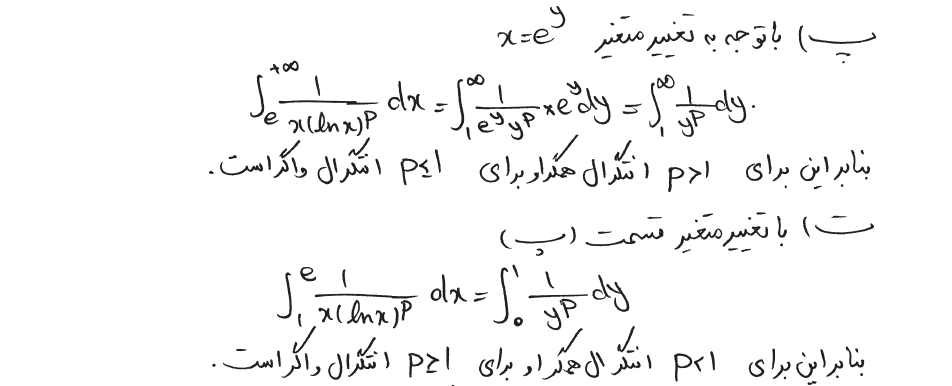 پ) با توجه به تغییر متغیر x=e^y
∫_e^{+∞} 1/(x(ln x)^p) dx = ∫_1^∞ 1/(e^y y^p) × e^y dy = ∫_1^∞ 1/y^p dy.
بنابراین برای p>1 انتگرال همگرا و برای p≤1 انتگرال واگراست.
ت) با تغییر متغیر قسمت (پ)
∫_1^e 1/(x(ln x)^p) dx = ∫_0^1 1/y^p dy
بنابراین برای p<1 انتگرال همگرا و برای p≥1 انتگرال واگراست.